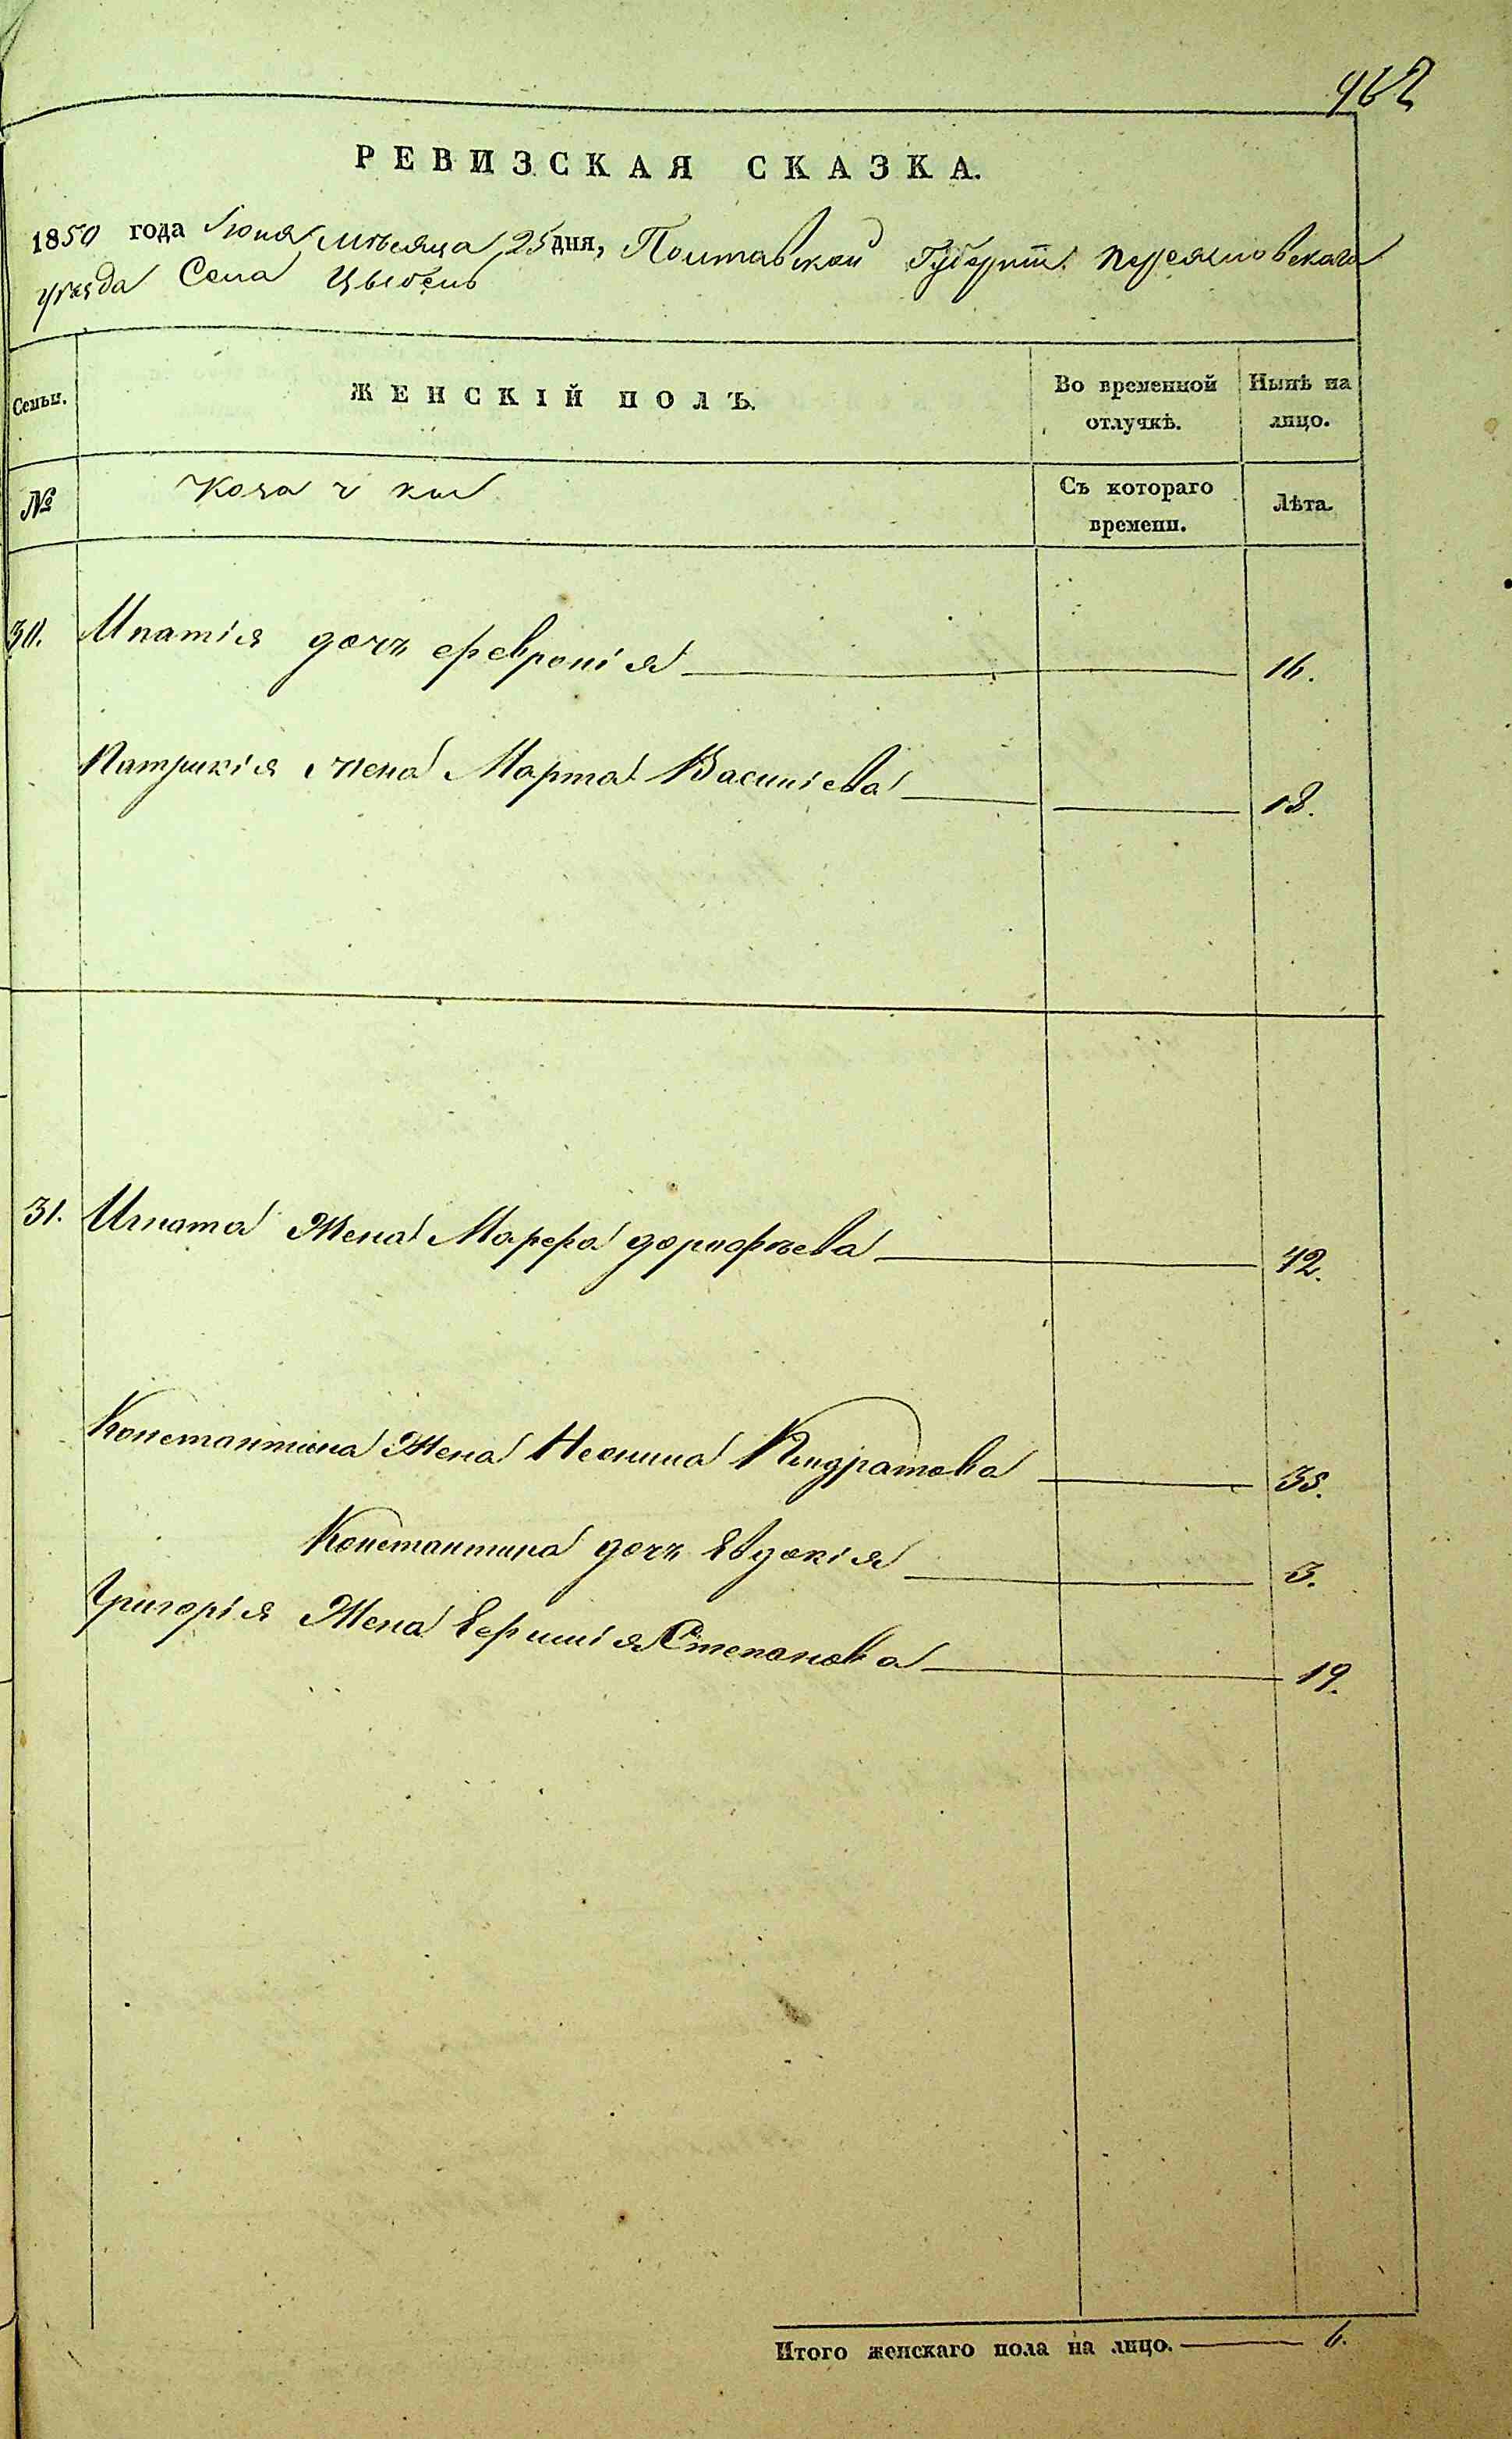 962
РЕВИЗСКАЯ СКАЗКА.
1850 года Июня мѣсяца 25 дня, Полтавской Губерніи Переясловскаго
уѣзда Села Цыбель
Семьи.
ЖЕНСКІЙ ПОЛЪ.
Во временной отлучкѣ.
Нынѣ на лицо.
№
Козачки
Съ котораго времени.
Лѣта.
30. Ипатія дочь Февронія 16.
Патрикія жена Марта Василіева 18.
31. Игната Жена Марфа дорофѣева 42.
Константина Жена Неонила Кондратова 35.
Константина дочь Евдокія 3.
Григорія Жена Ефимія Степанова 19.
Итого женскаго пола на лицо. 6.